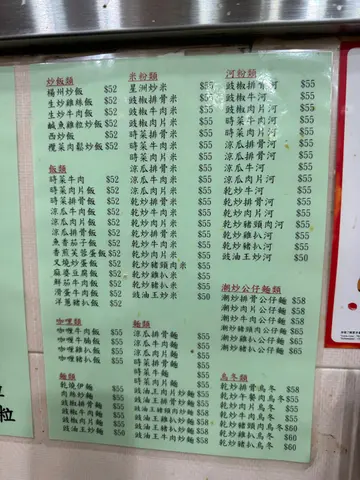 炒飯類
楊州炒飯 $52
生炒雞絲飯 $52
生炒牛肉飯 $52
鹹魚雞粒炒飯 $52
西炒飯 $52
欖菜肉鬆炒飯 $52
飯類
時菜牛肉 $52
時菜排骨飯 $52
時菜肉片飯 $52
涼瓜牛肉飯 $52
涼瓜排骨飯 $52
涼瓜肉片飯 $52
魚香茄子飯 $52
香煎芙蓉蛋飯 $52
叉燒炒蛋飯 $52
麻婆豆腐飯 $52
鮮茄牛肉飯 $52
滑蛋牛肉飯 $52
洋蔥豬扒飯 $52
咖喱類
咖喱牛肉飯 $55
咖喱牛腩飯 $55
咖喱雞扒飯 $55
咖喱豬扒飯 $55
麵類
乾燒伊麵 $55
肉絲炒麵 $55
豉椒排骨麵 $55
豉椒牛肉麵 $55
豉油王炒麵 $50
米粉類
星洲炒米 $55
豉椒排骨米 $55
豉椒牛肉米 $55
豉椒肉片米 $55
時菜排骨米 $55
時菜牛肉米 $55
時菜肉片米 $55
涼瓜排骨米 $55
涼瓜牛肉米 $55
涼瓜肉片米 $55
乾炒排骨米 $55
乾炒牛肉米 $55
乾炒肉片米 $55
乾炒豬頸肉米 $55
乾炒雞扒米 $55
乾炒豬扒米 $55
豉油王炒米 $50
麵類
涼瓜排骨麵 $55
涼瓜牛肉麵 $55
涼瓜肉片麵 $55
時菜排骨麵 $55
時菜牛肉麵 $55
時菜肉片麵 $55
乾炒排骨麵 $55
乾炒牛肉麵 $55
豉油王豬頸肉炒麵 $58
豉油王雞扒炒麵 $58
豉油王豬扒炒麵 $58
豉油王牛肉炒麵 $58
河粉類
豉椒排骨河 $55
豉椒牛河 $55
豉椒肉片河 $55
時菜排骨河 $55
時菜牛河 $55
時菜肉片河 $55
涼瓜排骨河 $55
涼瓜牛河 $55
涼瓜肉片河 $55
乾炒牛河 $55
乾炒排骨河 $55
乾炒肉片河 $55
乾炒豬頸肉河 $55
乾炒雞扒河 $55
乾炒豬扒河 $55
豉油王炒河 $50
潮炒公仔麵類
潮炒排骨公仔麵 $58
潮炒牛肉公仔麵 $58
潮炒豬頸肉公仔麵 $58
潮炒雞扒公仔麵 $65
潮炒豬扒公仔麵 $65
烏冬類
乾炒排骨烏冬 $58
乾炒牛肉烏冬 $55
乾炒肉片烏冬 $55
乾炒豬頸肉烏冬 $60
乾炒雞扒烏冬 $60
乾炒豬扒烏冬 $60
粒